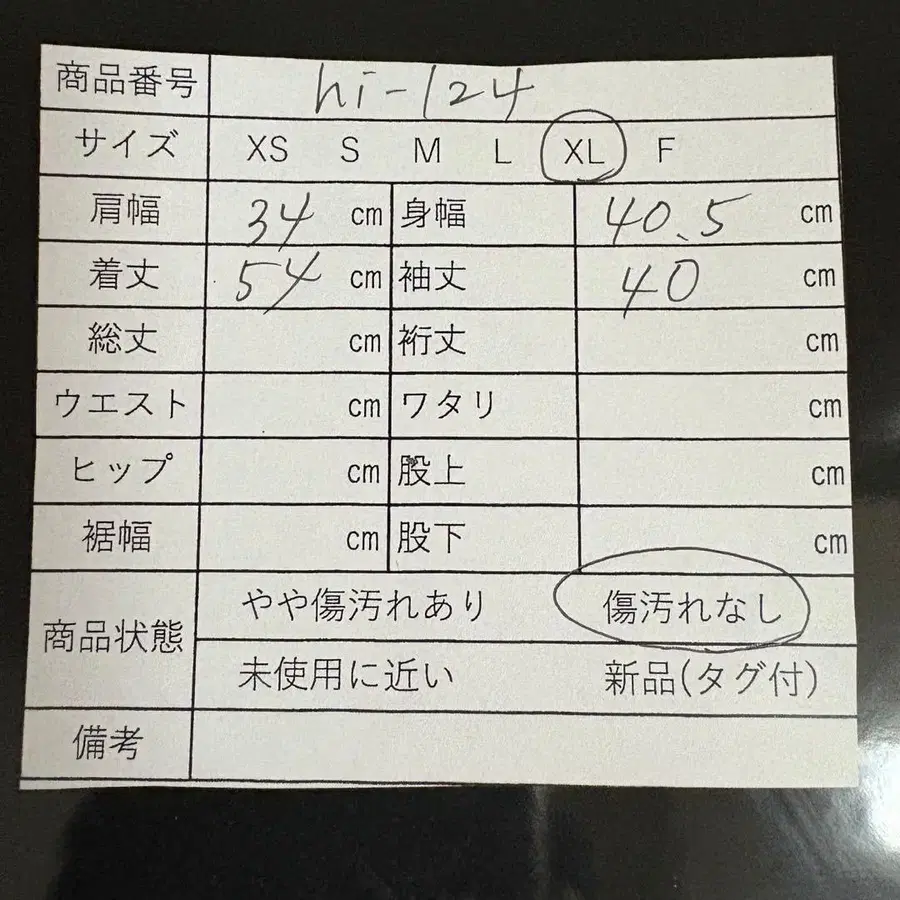 商品番号 hi-124
サイズ XS S M L XL F
肩幅 34 cm 身幅 40.5 cm
着丈 54 cm 袖丈 40 cm
総丈 cm 裄丈 cm
ウエスト cm ワタリ cm
ヒップ cm 股上 cm
裾幅 cm 股下 cm
商品状態 やや傷汚れあり 傷汚れなし
未使用に近い 新品(タグ付)
備考